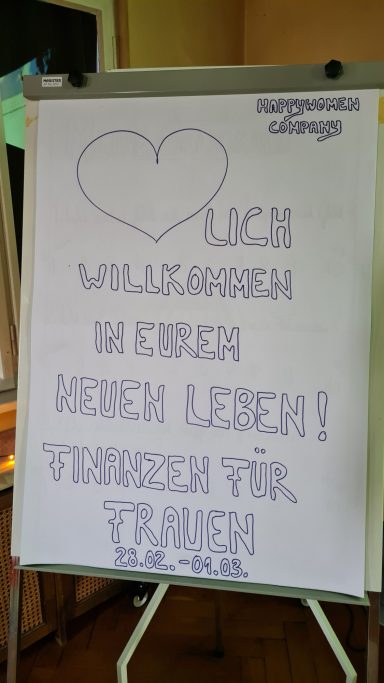 MAGISTER
HAPPYWOMEN
COMPANY
LICH
WILLKOMMEN
IN EUREM
NEUEN LEBEN!
FINANZEN FÜR
FRAUEN
28.02.-01.03.